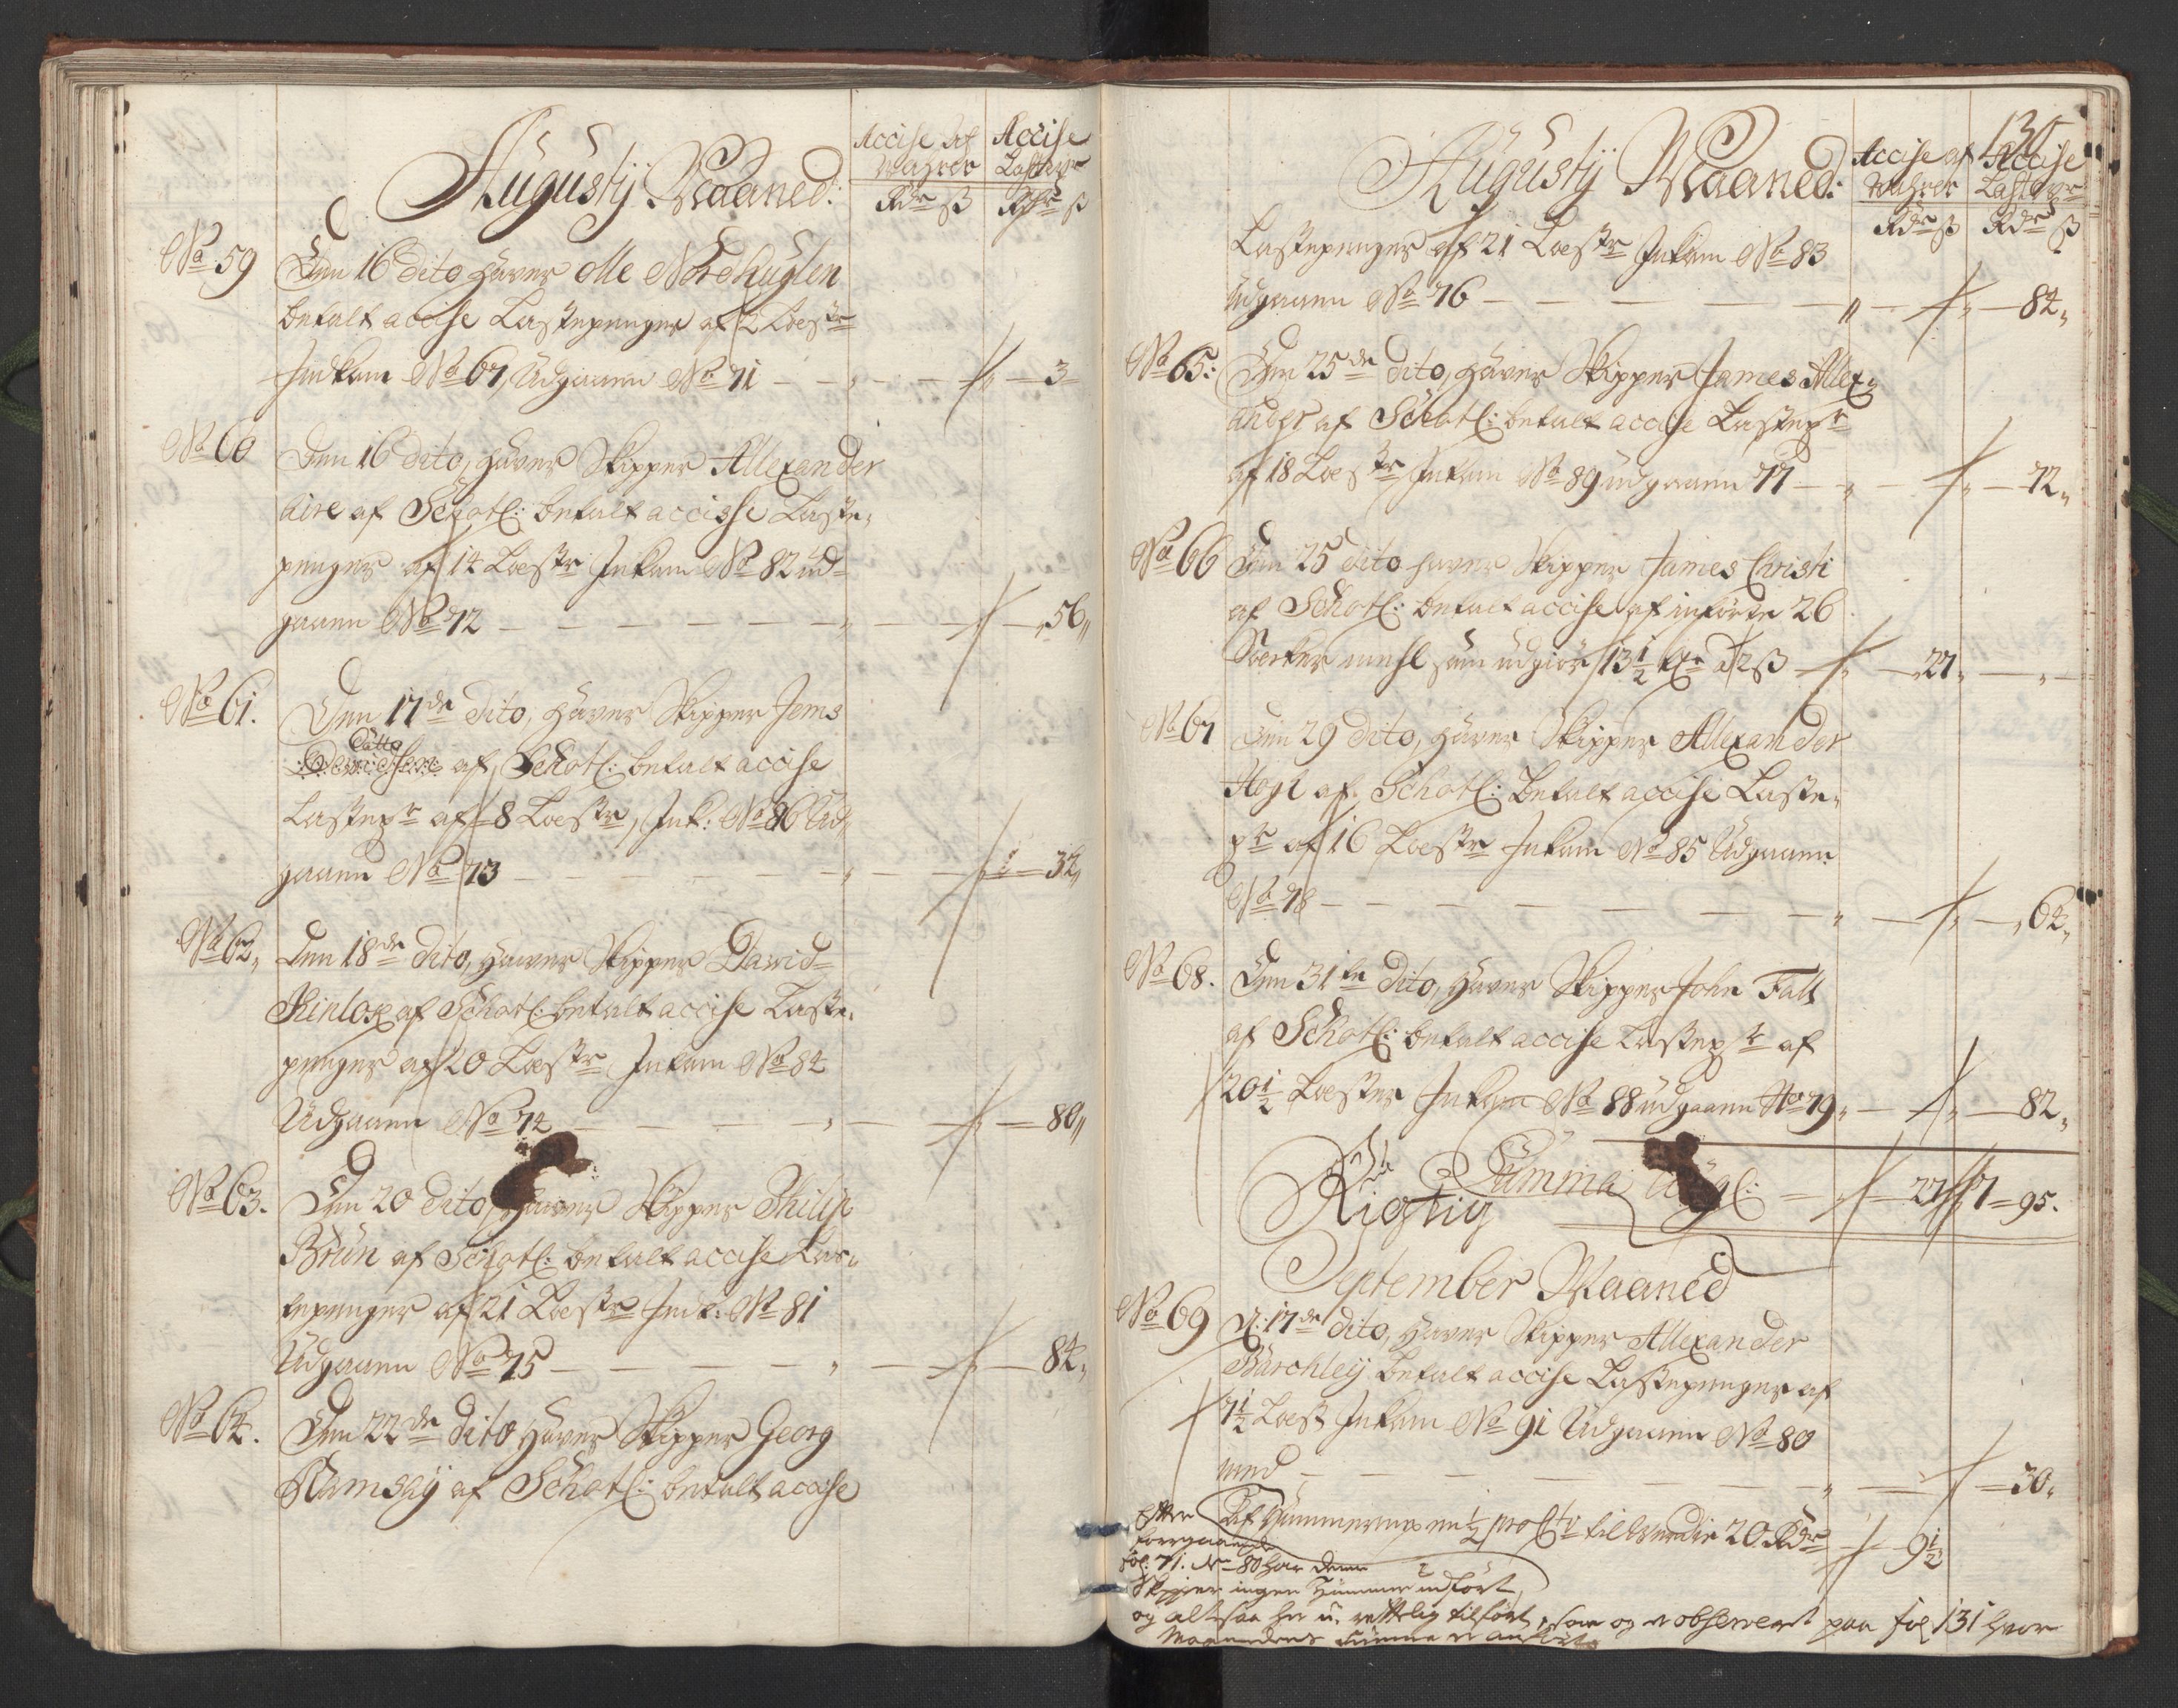 Augustij Maaned:
Accise af Wahrer
Accise Lastepr
Rdr ß
Rdr ß
No 59
Den 16 dito haver Olle Nordhuglen
betalt accise Lastepenger af 2 Loestr
Indkom No 67, Udgaaen No 71 — „ — „ — 3
No 60
Den 16 dito, haver Skipper Allexander
aire af Schotl: betalt accisse Laste„
penger af 14 Loestr Inkom No 82 ud„
gaaen No 72 — „ — „ — 56„
No 61.
Den 17de dito, haver Skipper Jems
af Schotl: betalt accise
Lastepr af 8 Loestr, Ink: No 86 Ud„
gaaen No 73 — „ — „ — 32„
No 62„
Den 18de dito, haver Skipper Dawid
Kinlox af Schotl: betalt accise Laste„
penger af 20 Loestr Inkom No 84
Udgaaen No 74 — „ — „ — 80„
No 63.
Den 20 dito, haver Skipper Philip
Brún af Schotl: betalt accise Las„
tepenger af 21 Loestr Ink: No 81
Udgaaen No 75 — „ — „ — 84„
No 64.
Den 22de dito haver Skipper Georg
Ramsaÿ af Schotl: betalt accise
130
Augustij Maaned:
Accise af Wahrer
Accise Lastepr
Rdr ß
Rdr ß
Lastepenger af 21 Loestr Inkom No 83
Udgaaen No 76 — „ — „ — 84„
No 65:
Den 25de dito, haver Skipper James Allex„
ander af Schotl: betalt accise Lastepr
af 18 Loestr Inkom No 89 udgaaen 77 — „ — „ — 72„
No 66
Den 25 dito haver Skipper James Christi
af Schotl: betalt accise af inførte 26
Sverker mehl som udgiør 13 1/2 tr a 2 ß — „ — 27„ — „
No 67
Den 29 dito, haver Skipper Allexander
Hogl af Schotl: Betalt accise Laste„
pr af 16 Loestr Inkom No 85 Udgaaen
No 78 — „ — „ — 64„
No 68.
Den 31te dito, haver Skipper John Fall
af Schotl: betalt accise Lastepr af
20 1/2 Loester Inkom No 88 udgaaen No 79„ — „ — 82„
Summa — 27 7 = 95.
Rigtig
September Maaned
No 69
D: 17de dito, haver Skipper Allexander
Barchleÿ betalt accise Lastepenger af
7 1/2 Loest Inkom No 91 Udgaaen No 80
med — „ — „ — 30„
Af Hummer 1/2 pro Cto til Werdie 20 Rdr — 9 1/2
Efter
forrgaaende
fol: 71. No 80 har denne
Skipper ingen Hummer udført,
og altsaa her u-rettelig tilført, som og er observeret paa fol 131 hvor
Maanedens Summa er anført